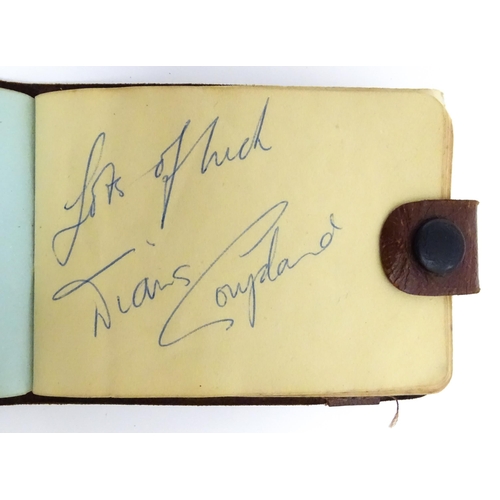 Lots of luck
Diana Coupland